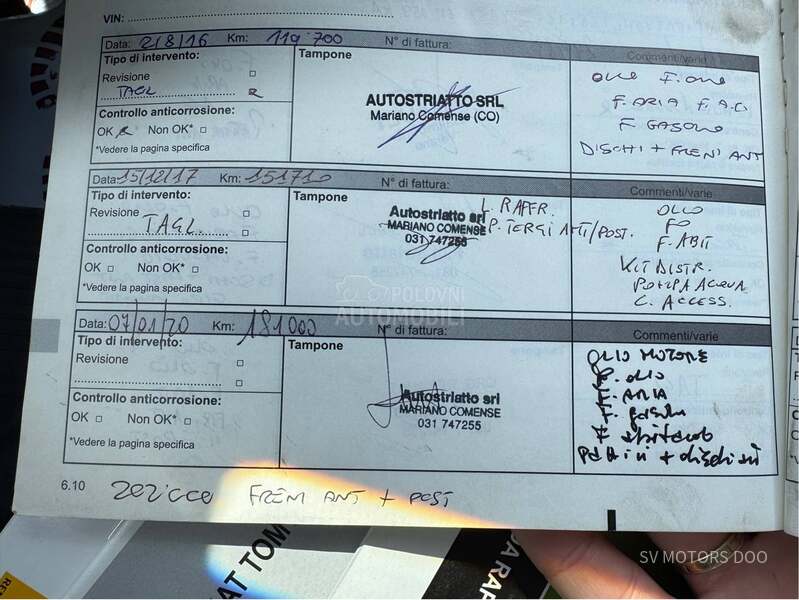 VIN:
Data: 2/8/16 Km: 119 700 N° di fattura:
Tipo di intervento: Tampone Commenti/varie
Revisione
TAGL
Controllo anticorrosione:
OK Non OK*
*Vedere la pagina specifica
AUTOSTRIATTO SRL
Mariano Comense (CO)
F. ARIA F. A.C
F. GASOLIO
DISCHI + FRENI ANT
Data: 15/12/17 Km: 151710 N° di fattura:
Tipo di intervento: Tampone Commenti/varie
Revisione
TAGL.
Controllo anticorrosione:
OK Non OK*
*Vedere la pagina specifica
Autostriatto srl
MARIANO COMENSE
031 747255
L. RAFFR.
P. TERGI ANT/POST.
OLIO
FO
F. ABIT
KIT DISTR.
POMPA ACQUA
C. ACCESS.
POLOVNI
AUTOMOBILI
Data: 07/01/20 Km: 181000 N° di fattura:
Tipo di intervento: Tampone Commenti/varie
Revisione
Controllo anticorrosione:
OK Non OK*
*Vedere la pagina specifica
Autostriatto srl
MARIANO COMENSE
031 747255
OLIO MOTORE
F. OLIO
F. ARIA
F. gasolio
F. abitacolo
6.10 FRENI ANT + POST
AT TOM
SV MOTORS DOO